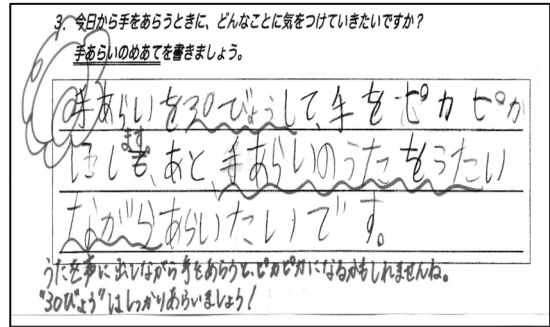 3. 今日から手をあらうときに、どんなことに気をつけていきたいですか？
手あらいのめあてを書きましょう。
手あらいを30びょうして、手をピカピカ
にします。あと、手あらいのうたをうたい
ながらあらいたいです。
うたを声に出しながら手をあらうと、ピカピカになるかもしれませんね。
"30びょう"はしっかりあらいましょう！